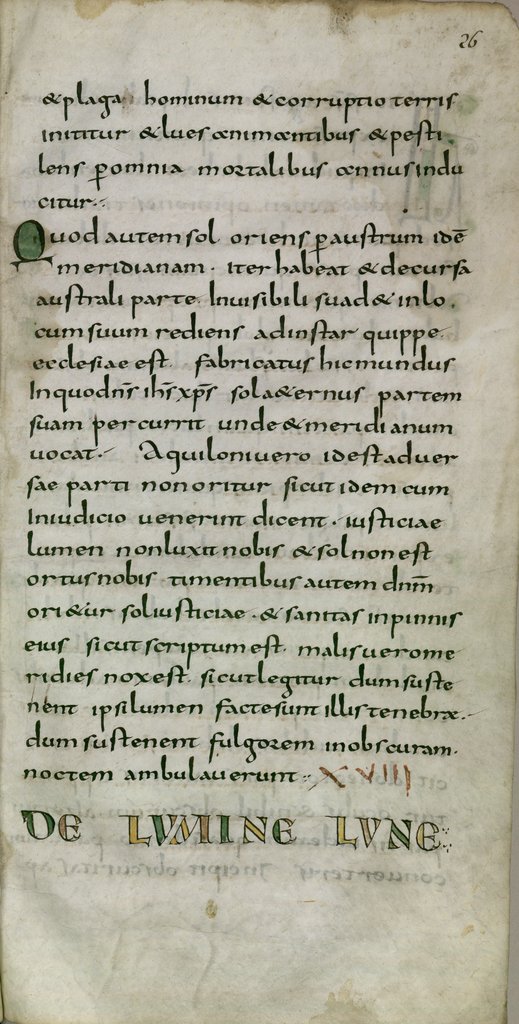 26
& plaga hominum & corruptio terris
inititur & lues animantibus & pesti
lens ꝑ omnia mortalibus annus indu
citur
Quod autem sol oriens ꝑ austrum idē
meridianam · iter habeat & decursa
australi parte · Invisibili suad & inlo
cum suum rediens ad instar quippe
ecclesiae est fabricatus hic mundus
In quo dn̄s ih̄s xp̄s sol a&ernus partem
suam percurrit unde & meridianum
vocat · Aquiloni vero id est adver
sae parti non oritur sicut idem cum
In iudicio venerint dicent · iusticiae
lumen non luxit nobis & sol non est
ortus nobis timentibus autem dn̄m
ori&ur sol iusticiae · & sanitas in pinnis
eius sicut scriptum est · malis vero me
ridies nox est · sicut legitur dum suste
nent ipsi lumen factesunt illis tenebrae
dum sustenent fulgorem in obscuram
noctem ambulaverunt · XXVIII
DE LVMINE LVNE